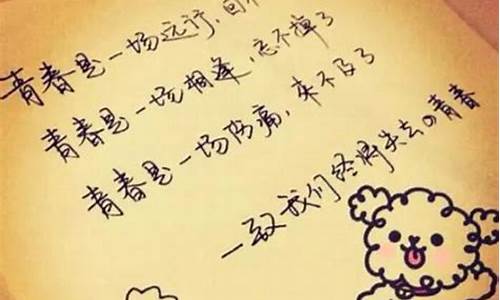 青春是一场远行,回不
青春是一场相逢,忘不掉了
青春是一场伤痛,来不及了
一致我们终将失去的青春